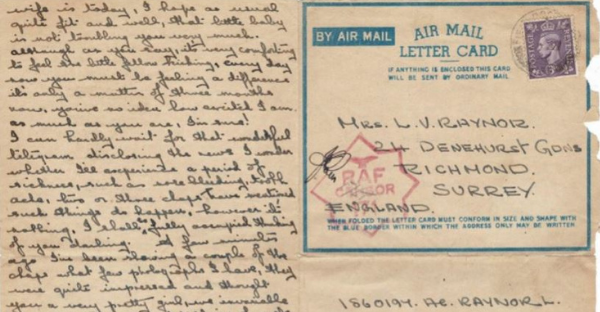 wife is today, I hope as usual
quite fit and well, that little baby
is not troubling you very much.
although as you say, it's very comforting
to feel the little fellow kicking, every day
now you must be feeling a difference
it's only a matter of three months
now, you've no idea how excited I am.
as much as you are, I'm sure!
I can hardly wait for that wonderful
telegram, disclosing the news I wonder
whether I'll experience a period of
sickness, such as nose bleeding, tooth
ache, two or three chaps have
such things do happen, however it's
nothing, I shall be fully occupied thinking
of you Darling. A few minutes
ago I've been showing a couple of the
chaps what few photographs I have, they
were quite impressed and thought
you a very pretty girl, we invariably
BY AIR MAIL
AIR MAIL
LETTER CARD
IF ANYTHING IS ENCLOSED THIS CARD
WILL BE SENT BY ORDINARY MAIL.
MRS. L.V. RAYNOR.
24 DENEHURST GDNS
RICHMOND.
SURREY.
ENGLAND.
RAF
CENSOR
WHEN FOLDED THE LETTER CARD MUST CONFORM IN SIZE AND SHAPE WITH
THE BLUE BORDER WITHIN WHICH THE ADDRESS ONLY MAY BE WRITTEN.
1860197. AC. RAYNOR L.